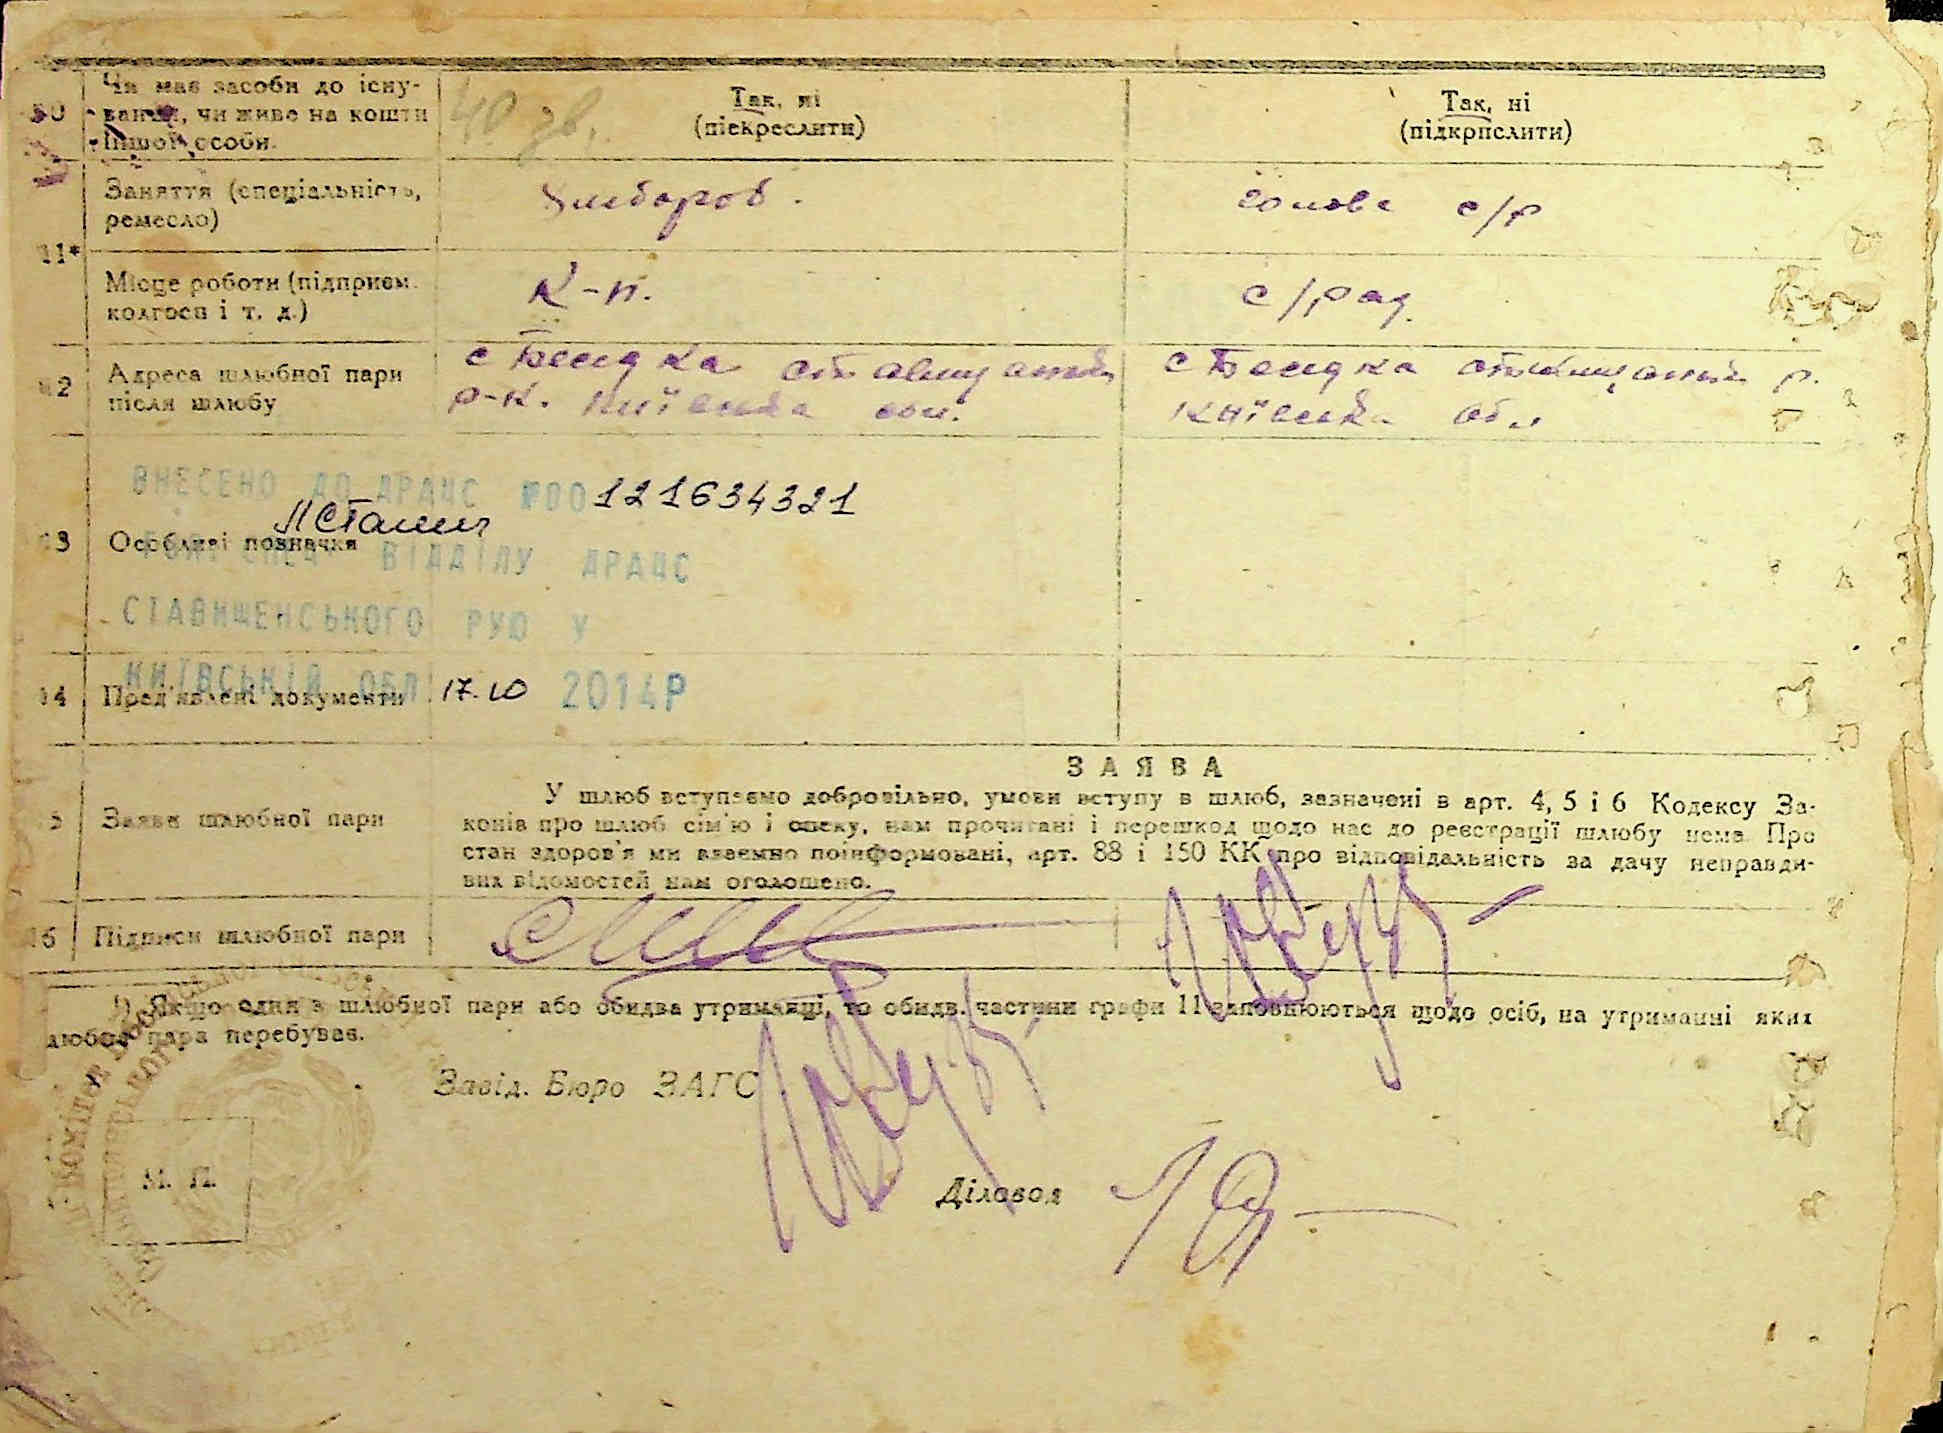 10 Чи має засоби до існу-
вання, чи живе на кошти
іншої особи.
40 зв.
Так, ні
(піекреслити)
Так, ні
(підкрпслити)
11*
Заняття (спеціальність,
ремесло)
голова с/р
Місце роботи (підприєм.
колгосп і т. д.)
К-п.
с/рад.
12 Адреса шлюбної пари
після шлюбу
с Бесідка
р-н. Київська обл.
с Бесідка
Київська обл
13 Особливі позначки
ВНЕСЕНО ДО ДРАЦС №00121634321
ВІДДІЛУ ДРАЦС
СТАВИЩЕНСЬКОГО РУЮ У
КИЇВСЬКІЙ ОБЛ 17.10 2014Р
14 Пред'явлені документи
15 Заява шлюбної пари
ЗАЯВА
У шлюб вступаємо добровільно, умови вступу в шлюб, зазначені в арт. 4, 5 і 6 Кодексу За-
конів про шлюб сім'ю і опеку, нам прочитані і перешкод щодо нас до реєстрації шлюбу нема. Про
стан здоров'я ми взаємно поінформовані, арт. 88 і 150 КК про відповідальність за дачу неправди-
вих відомостей нам оголошено.
16 Підписи шлюбної пари
¹) Якщо один з шлюбної пари або обидва утриманці, то обидв. частини графи 11 заповнюються щодо осіб, на утриманні яких
шлюбна пара перебуває.
Завід. Бюро ЗАГС
М. П.
Діловод